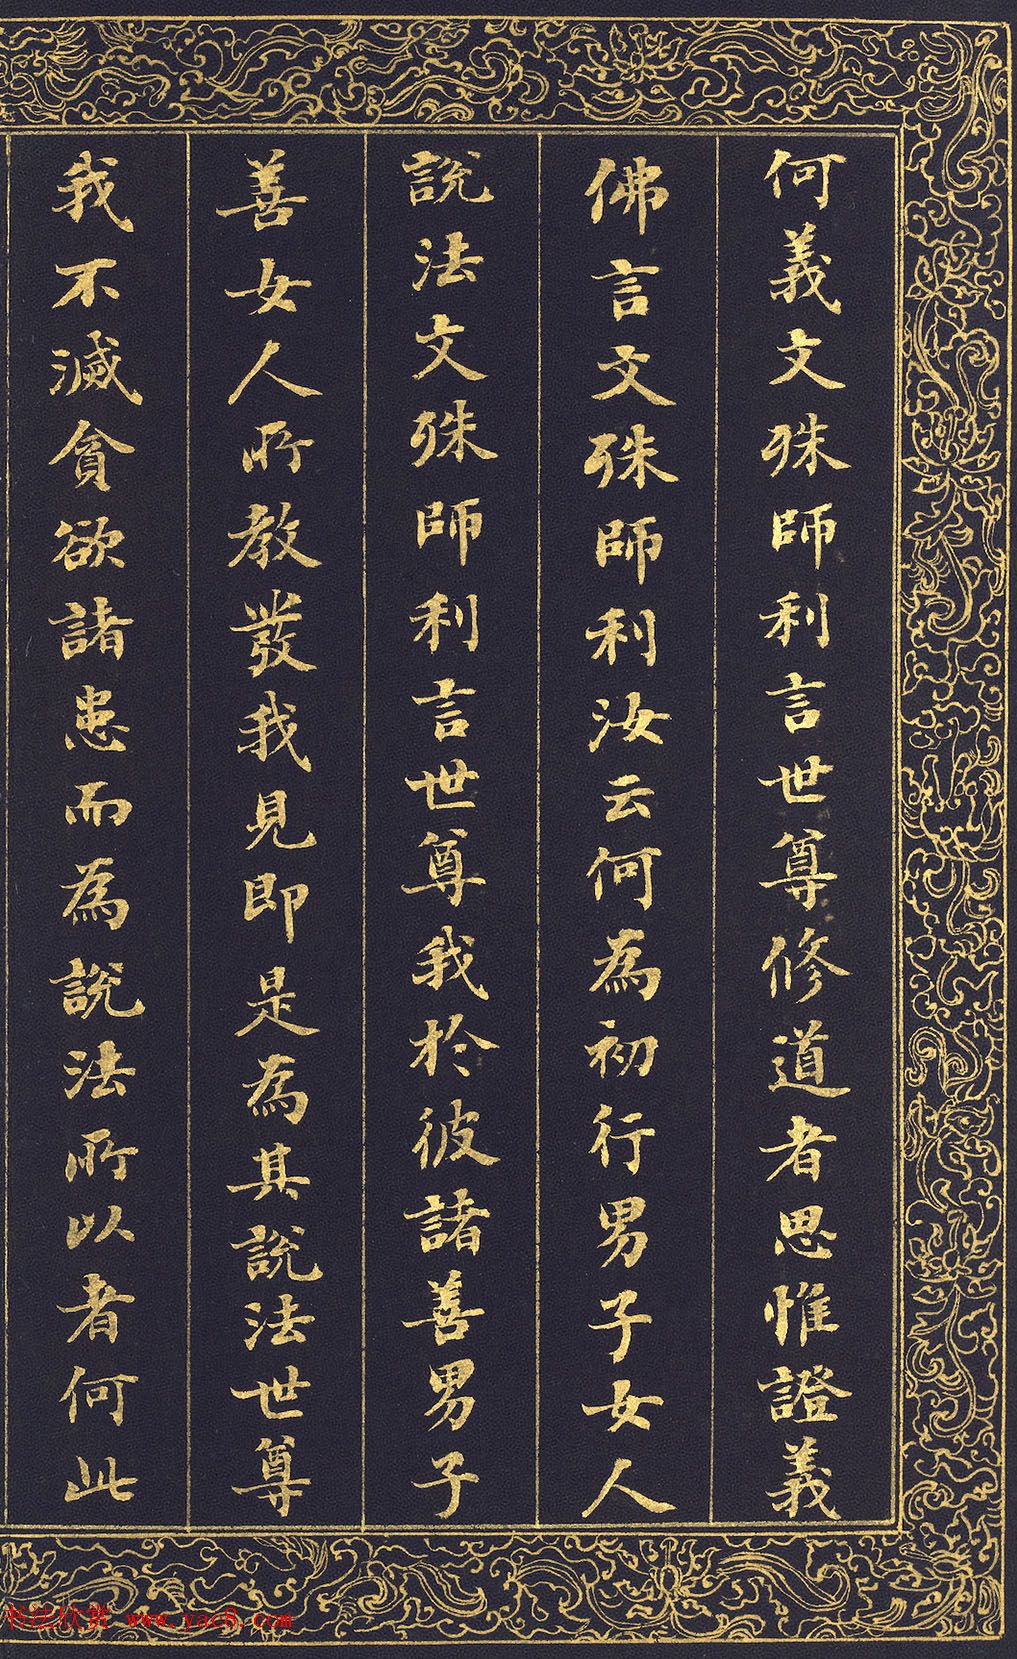 何義文殊師利言世尊修道者思惟證義
佛言文殊師利汝云何為初行男子女人
說法文殊師利言世尊我於彼諸善男子
善女人所教發我見即是為其說法世尊
我不滅貪欲諸患而為說法所以者何此
书法欣赏 www.yac8.com